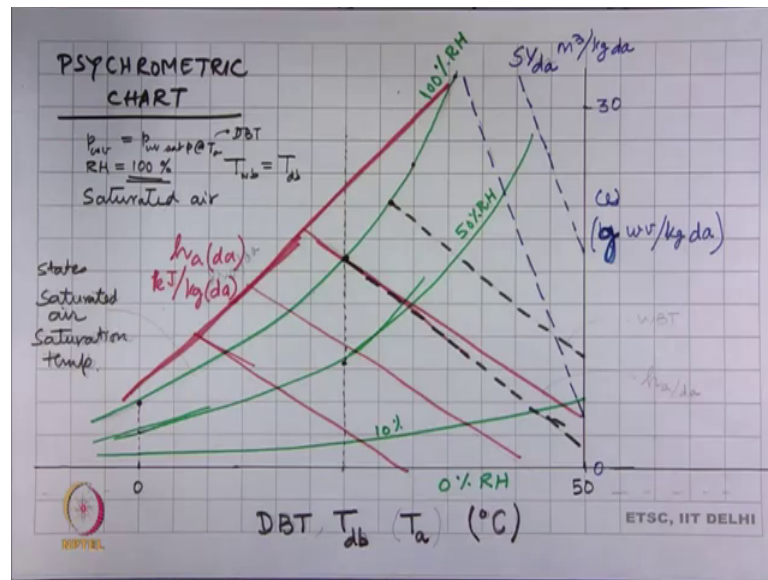 PSYCHROMETRIC
CHART
Pwv = Pwv sat p @ Ta DBT
RH = 100 %
Twb = Tdb
Saturated air
states
Saturated
air
Saturation
temp.
ha(da)
kJ/kg(da)
100% RH
50% RH
10%
0% RH
SVda m³/kgda
30
ω
(g wv/kg da)
WBT
ha/da
0
0
50
DBT, Tdb (Ta) (°C)
NPTEL
ETSC, IIT DELHI